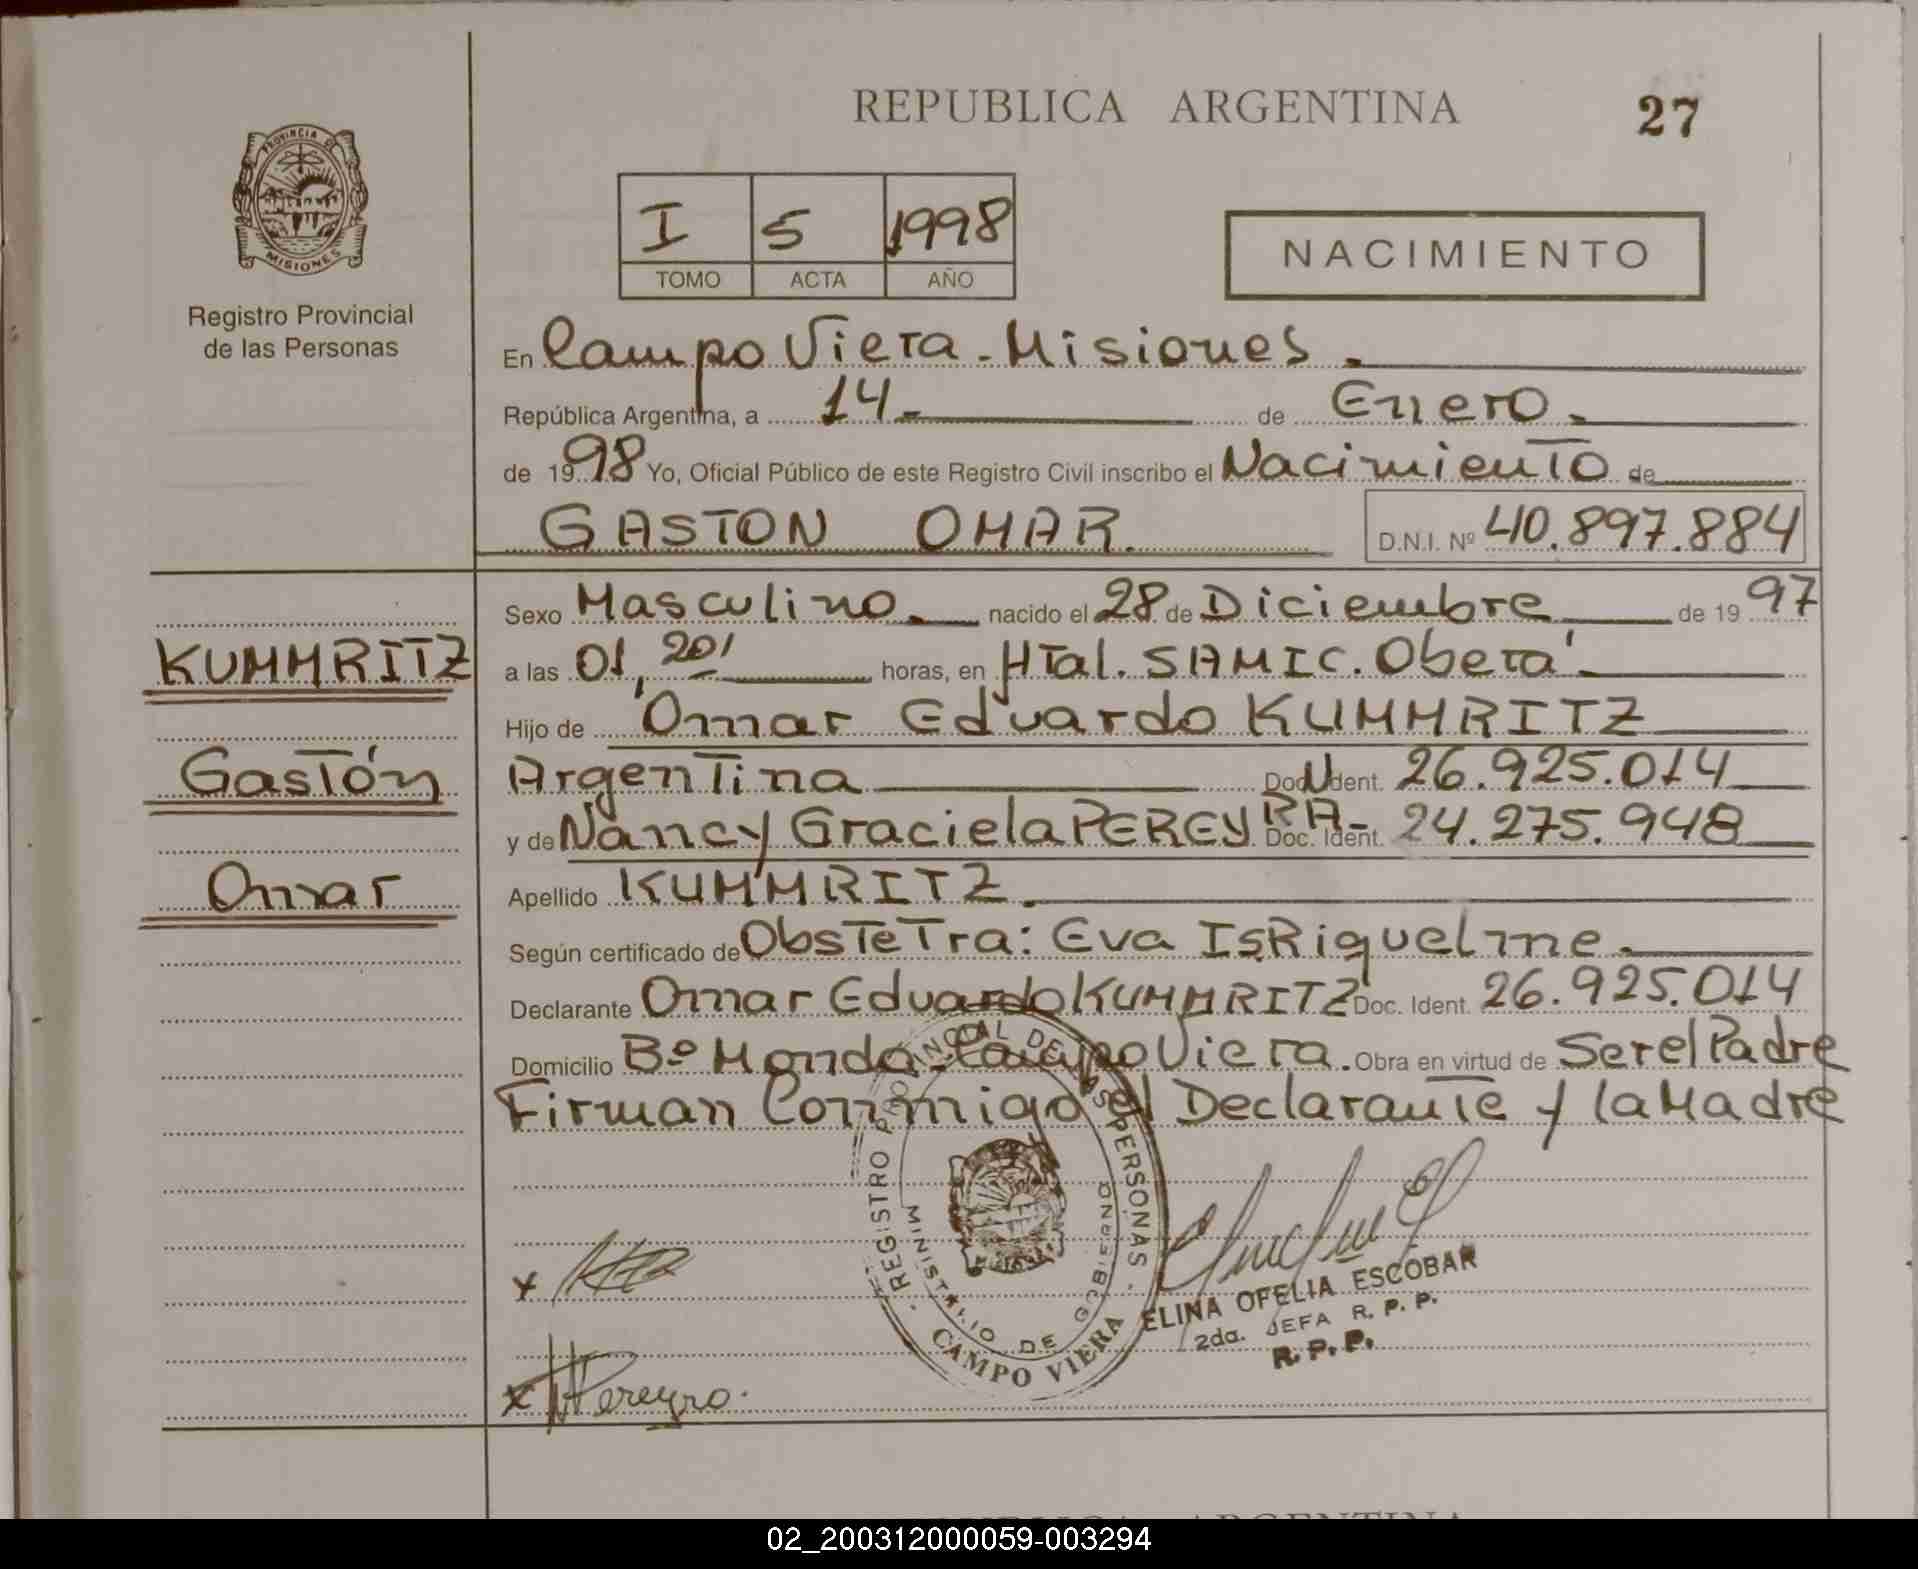 REPUBLICA ARGENTINA
27
PROVINCIA DE
MISIONES
Registro Provincial
de las Personas
I 5 1998
TOMO ACTA AÑO
NACIMIENTO
En Campo Viera - Misiones.
República Argentina, a 14 - de Enero.
de 1998 Yo, Oficial Público de este Registro Civil inscribo el Nacimiento de
GASTON OMAR.
D.N.I. Nº 40.897.884
KUMMRITZ
Gastón
Omar
Sexo Masculino. nacido el 28 de Diciembre de 1997
a las 01, 20' horas, en HTal. SAMIC. Oberá
Hijo de Omar Eduardo KUMMRITZ
Argentina Doc. Ident. 26.925.014
y de Nancy Graciela PEREYRA- Doc. Ident. 24.275.948
Apellido KUMMRITZ.
Según certificado de Obstetra: Eva IsRiquelme.
Declarante Omar Eduardo KUMMRITZ Doc. Ident. 26.925.014
Domicilio Bº Mondo - Campo Viera. Obra en virtud de Ser el Padre
Firman Conmigo el Declarante y la Madre
REGISTRO PROVINCIAL DE LAS PERSONAS
MINISTERIO DE GOBIERNO
CAMPO VIERA
ELINA OFELIA ESCOBAR
2da. JEFA R. P. P.
R. P. P.
x
x Pereyra.
REPUBLICA ARGENTINA
02_200312000059-003294